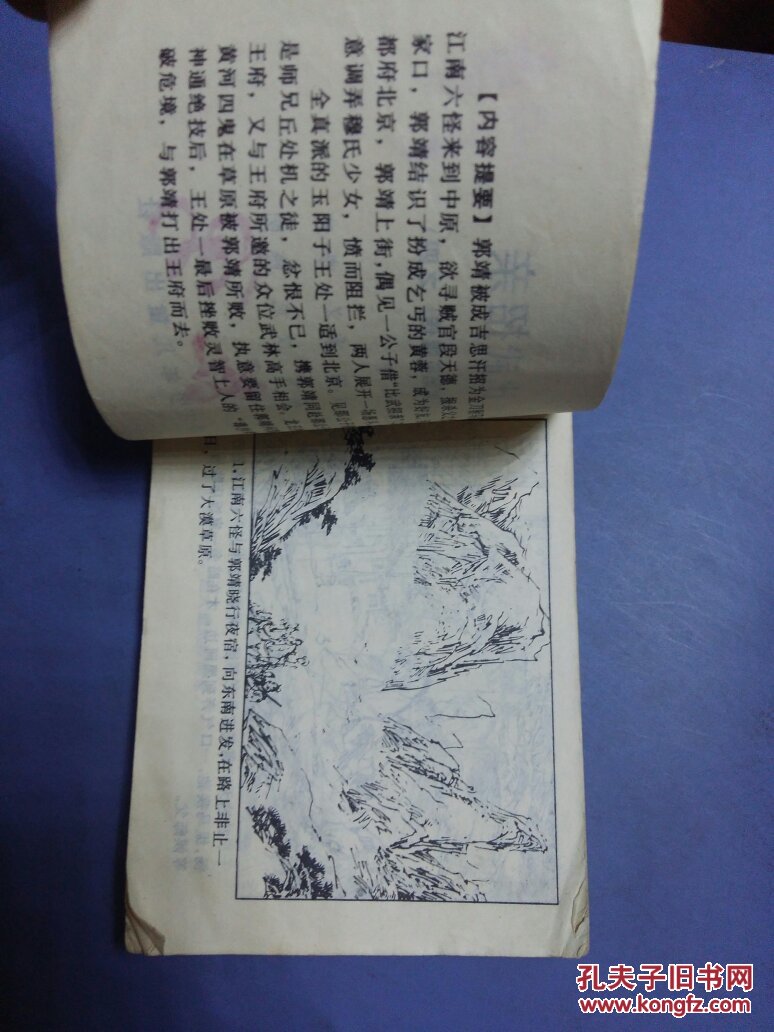 【内容提要】郭靖被成吉思汗招为金刀驸
江南六怪来到中原，欲寻贼官段天德，报杀父
家口，郭靖结识了扮成乞丐的黄蓉，成为好友
都府北京，郭靖上街，偶见一公子借“比武招亲”
意调弄穆氏少女，愤而阻拦，两人展开一场恶
全真派的玉阳子王处一适到北京。见那公
是师兄丘处机之徒，忿恨不已，携郭靖同赴
王府，又与王府所邀的众位武林高手相会。
黄河四鬼在草原被郭靖所败，执意要留住
神通绝技后，王处一最后挫败灵智上人的
破危境，与郭靖打出王府而去。
1.江南六怪与郭靖晓行夜宿，向东南进发，在路上非止一
日，过了大漠草原。
孔夫子旧书网
www.kongfz.com